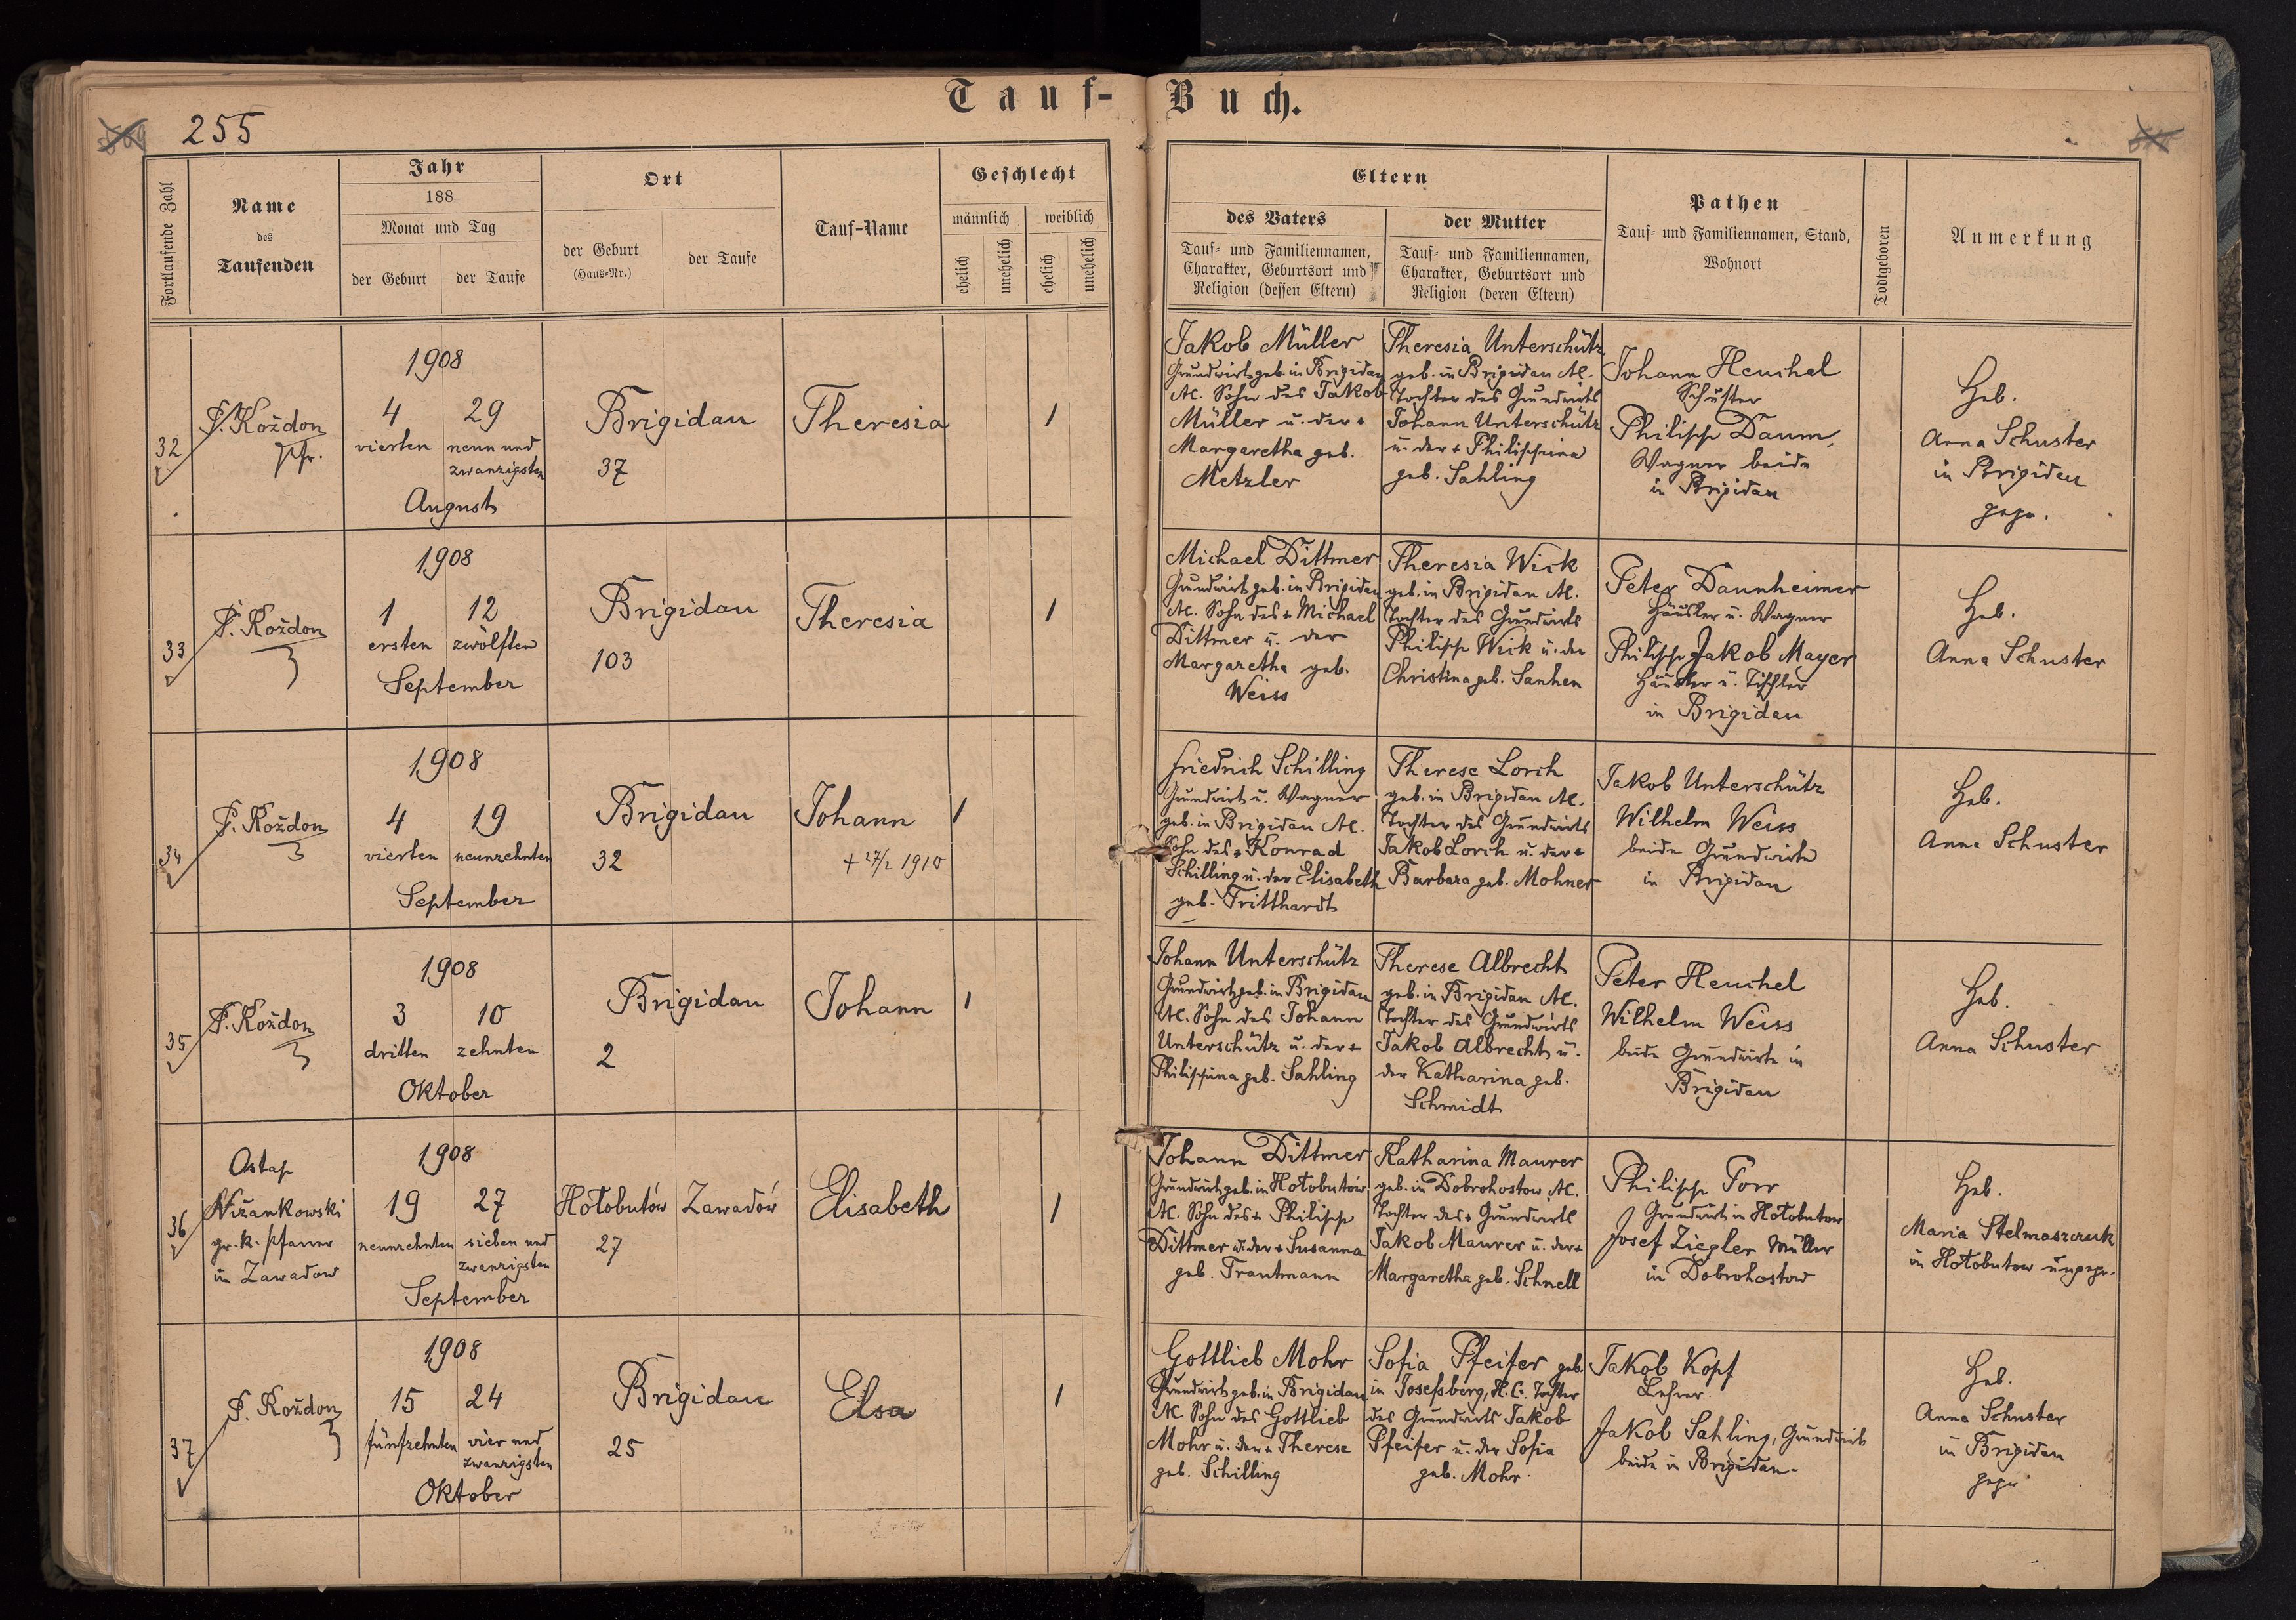 Tauf-Buch.
255
Fortlaufende Zahl
Name
des
Taufenden
Jahr
188
Monat und Tag
der Geburt
der Taufe
Ort
der Geburt
(Haus-Nr.)
der Taufe
Tauf-Name
Geschlecht
männlich
weiblich
ehelich
unehelich
ehelich
unehelich
Eltern
des Vaters
Tauf- und Familiennamen,
Charakter, Geburtsort und
Religion (dessen Eltern)
der Mutter
Tauf- und Familiennamen,
Charakter, Geburtsort und
Religion (deren Eltern)
Pathen
Tauf- und Familiennamen, Stand,
Wohnort
Todtgeboren
Anmerkung
32
P. Kożdon
Pfr.
1908
4 29
vierten neun und
zwanzigsten
August
Brigidau
37
Theresia
1
Jakob Müller
Grundwirt geb. in Brigidau
AC. Sohn des Jakob
Müller u. der +
Margaretha geb.
Metzler
Theresia Unterschütz
geb. in Brigidau AC.
Tochter des Grundwirts
Johann Unterschütz
u. der + Philippina
geb. Sahling
Johann Heuchel
Schuster
Philipp Daum,
Wagner beide
in Brigidau
Heb.
Anna Schuster
in Brigidau
gepr.
33
P. Kożdon
1908
1 12
ersten zwölften
September
Brigidau
103
Theresia
1
Michael Dittmer
Grundwirt geb. in Brigidau
AC. Sohn des + Michael
Dittmer u. der
Margaretha geb.
Weiss
Theresia Wick
geb. in Brigidau AC.
Tochter des Grundwirts
Philipp Wick u. der
Christina geb. Sanhen
Peter Daunheimer
Häusler u. Wagner
Philipp Jakob Mayer
Häusler u. Tischler
in Brigidau
Heb.
Anna Schuster
34
P. Kożdon
1908
4 19
vierten neunzehnten
September
Brigidau
32
Johann
+ 27/2 1910
1
Friedrich Schilling
Grundwirt u. Wagner
geb. in Brigidau AC.
Sohn des + Konrad
Schilling u. der Elisabeth
geb. Tritthardt
Therese Lorch
geb. in Brigidau AC.
Tochter des Grundwirts
Jakob Lorch u. der +
Barbara geb. Mohner
Jakob Unterschütz
Wilhelm Weiss
beide Grundwirte
in Brigidau
Heb.
Anna Schuster
35
P. Kożdon
1908
3 10
dritten zehnten
Oktober
Brigidau
2
Johann
1
Johann Unterschütz
Grundwirt geb. in Brigidau
AC. Sohn des Johann
Unterschütz u. der +
Philippina geb. Sahling
Therese Albrecht
geb. in Brigidau AC.
Tochter des Grundwirts
Jakob Albrecht u.
der Katharina geb.
Schmidt
Peter Heuchel
Wilhelm Weiss
beide Grundwirte in
Brigidau
Heb.
Anna Schuster
36
Ostap
Niżankowski
gr. k. Pfarrer
in Zawadow
1908
19 27
neunzehnten sieben und
zwanzigsten
September
Hołobutów
27
Zawadów
Elisabeth
1
Johann Dittmer
Grundwirt geb. in Hołobutów
AC. Sohn des + Philipp
Dittmer u. der + Susanna
geb. Trautmann
Katharina Maurer
geb. in Dobrohostow AC.
Tochter des + Grundwirts
Jakob Maurer u. der +
Margaretha geb. Schnell
Philipp Porr
Grundwirt in Hołobutow
Josef Ziegler Müller
in Dobrohostow
Heb.
Maria Stelmaszczuk
in Hołobutow ungepr.
37
P. Kożdon
1908
15 24
fünfzehnten vier und
zwanzigsten
Oktober
Brigidau
25
Elsa
1
Gottlieb Mohr
Grundwirt geb. in Brigidau
AC Sohn des Gottlieb
Mohr u. der + Therese
geb. Schilling
Sofia Pfeifer geb.
in Josefsberg, H.C. Tochter
des Grundwirts Jakob
Pfeifer u. der Sofia
geb. Mohr.
Jakob Kopf
Lehrer.
Jakob Sahling, Grundwirt
beide in Brigidau.
Heb.
Anna Schuster
in Brigidau
gepr